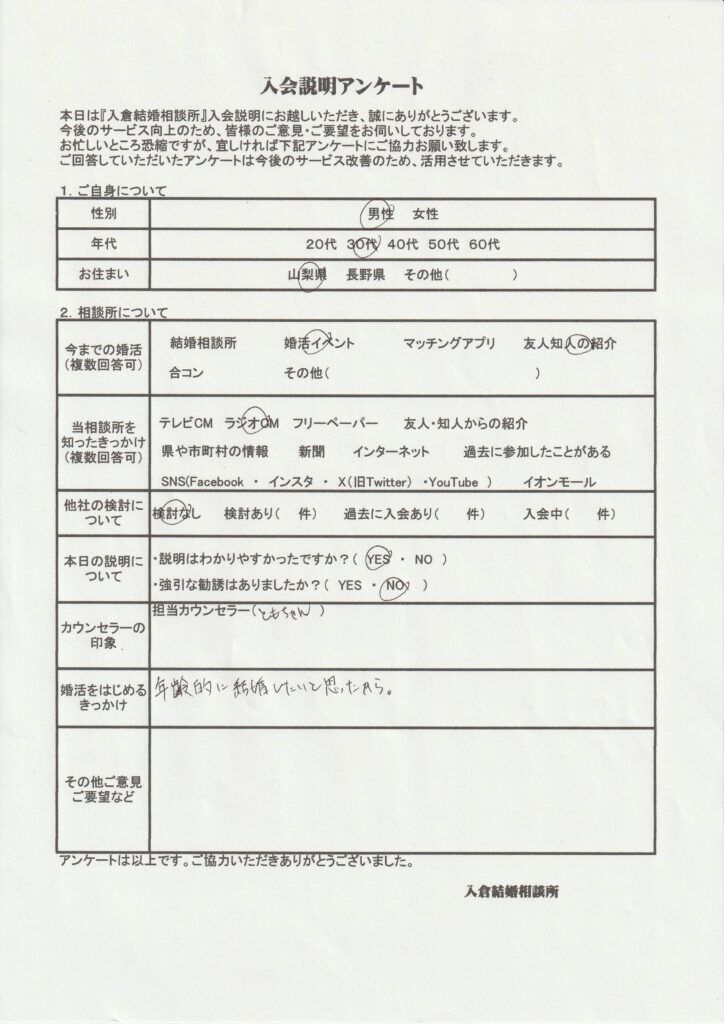 入会説明アンケート
本日は『入倉結婚相談所』入会説明にお越しいただき、誠にありがとうございます。
今後のサービス向上のため、皆様のご意見・ご要望をお伺いしております。
お忙しいところ恐縮ですが、宜しければ下記アンケートにご協力お願い致します。
ご回答していただいたアンケートは今後のサービス改善のため、活用させていただきます。
1. ご自身について
性別 男性 女性
年代 20代 30代 40代 50代 60代
お住まい 山梨県 長野県 その他( )
2. 相談所について
今までの婚活 結婚相談所 婚活イベント マッチングアプリ 友人知人の紹介
(複数回答可) 合コン その他( )
当相談所を テレビCM ラジオCM フリーペーパー 友人・知人からの紹介
知ったきっかけ 県や市町村の情報 新聞 インターネット 過去に参加したことがある
(複数回答可) SNS(Facebook ・ インスタ ・ X(旧Twitter) ・YouTube ) イオンモール
他社の検討に 検討なし 検討あり( 件) 過去に入会あり( 件) 入会中( 件)
ついて
本日の説明に ・説明はわかりやすかったですか?( YES ・ NO )
ついて ・強引な勧誘はありましたか?( YES ・ NO )
カウンセラーの 担当カウンセラー(ともちゃん )
印象
婚活をはじめる 年齢的に結婚したいと思ったから。
きっかけ
その他ご意見
ご要望など
アンケートは以上です。ご協力いただきありがとうございました。
入倉結婚相談所